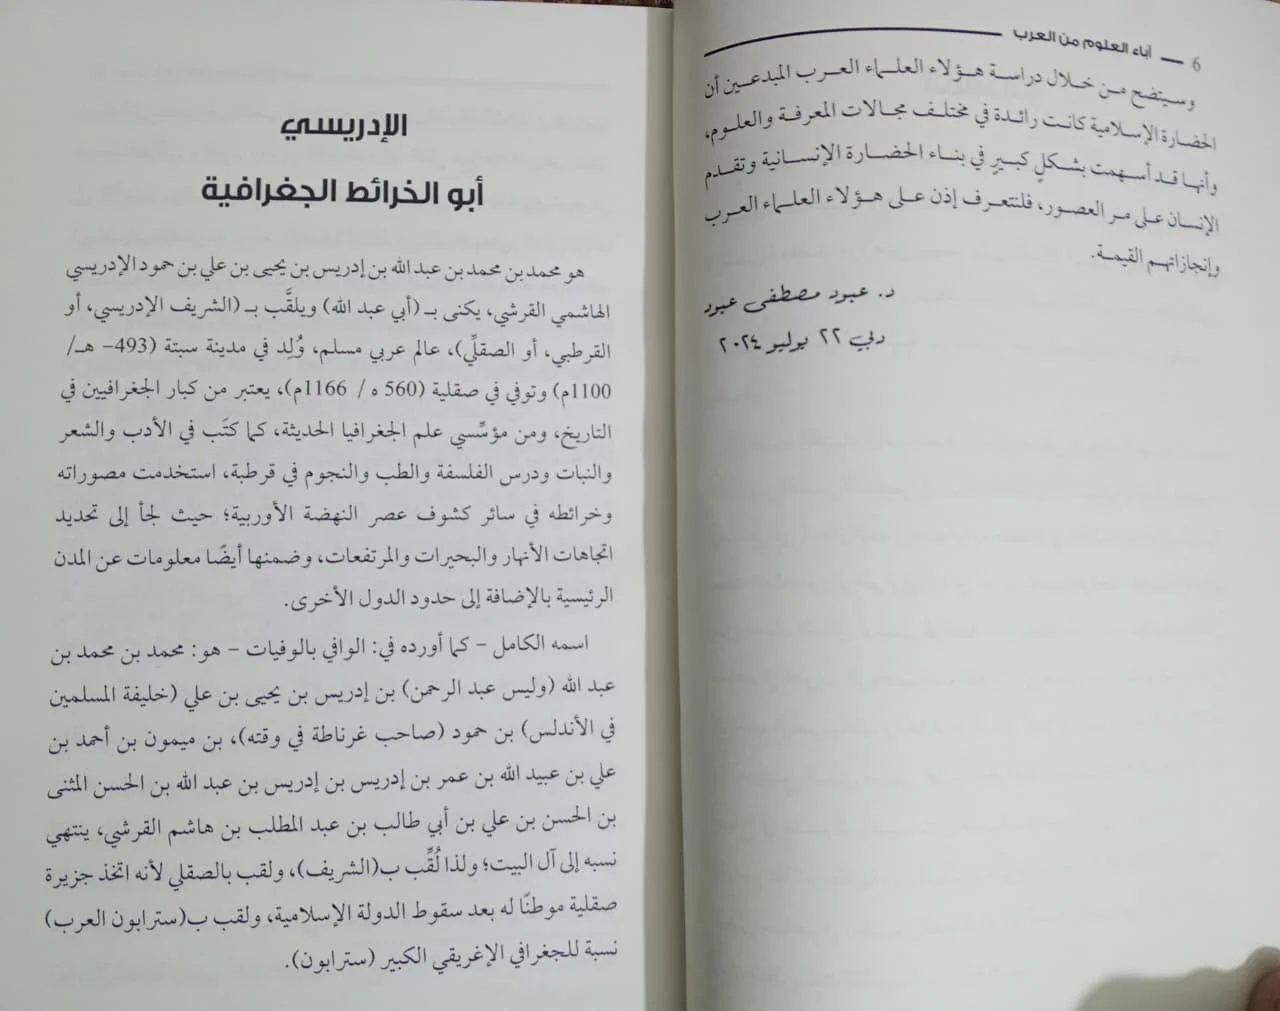 6 — آباء العلوم من العرب
وسيتضح من خلال دراسة هؤلاء العلماء العرب المبدعين أن
الحضارة الإسلامية كانت رائدة في مختلف مجالات المعرفة والعلوم،
وأنها قد أسهمت بشكلٍ كبيرٍ في بناء الحضارة الإنسانية وتقدم
الإنسان على مر العصور، فلنتعرف إذن على هؤلاء العلماء العرب
وإنجازاتهم القيمة.
د. عبود مصطفى عبود
دبي ٢٢ يوليو ٢٠٢٤
الإدريسي
أبو الخرائط الجغرافية
هو محمد بن محمد بن عبد الله بن إدريس بن يحيى بن علي بن حمود الإدريسي
الهاشمي القرشي، يكنى بـ (أبي عبد الله) ويلقَّب بـ (الشريف الإدريسي، أو
القرطبي، أو الصقلِّي)، عالم عربي مسلم، وُلِد في مدينة سبتة (493- هـ/
1100م) وتوفي في صقلية (560 ه / 1166م)، يعتبر من كبار الجغرافيين في
التاريخ، ومن مؤسِّسي علم الجغرافيا الحديثة، كما كتَب في الأدب والشعر
والنبات ودرس الفلسفة والطب والنجوم في قرطبة، استخدمت مصوراته
وخرائطه في سائر كشوف عصر النهضة الأوربية؛ حيث لجأ إلى تحديد
اتجاهات الأنهار والبحيرات والمرتفعات، وضمنها أيضًا معلومات عن المدن
الرئيسية بالإضافة إلى حدود الدول الأخرى.
اسمه الكامل - كما أورده في: الوافي بالوفيات - هو: محمد بن محمد بن
عبد الله (وليس عبد الرحمن) بن إدريس بن يحيى بن علي (خليفة المسلمين
في الأندلس) بن حمود (صاحب غرناطة في وقته)، بن ميمون بن أحمد بن
علي بن عبيد الله بن عمر بن إدريس بن إدريس بن عبد الله بن الحسن المثنى
بن الحسن بن علي بن أبي طالب بن عبد المطلب بن هاشم القرشي، ينتهي
نسبه إلى آل البيت؛ ولذا لُقِّب ب(الشريف)، ولقب بالصقلي لأنه اتخذ جزيرة
صقلية موطنًا له بعد سقوط الدولة الإسلامية، ولقب ب(سترابون العرب)
نسبة للجغرافي الإغريقي الكبير (سترابون).